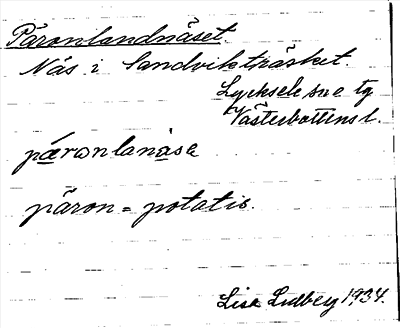 Päronlandnäset.
Näs i Sandviksträsket.
Lycksele sn e tg
Västerbottens l.
pæronlanäsa
päron = potatis.
Lisa Lidberg 1934.